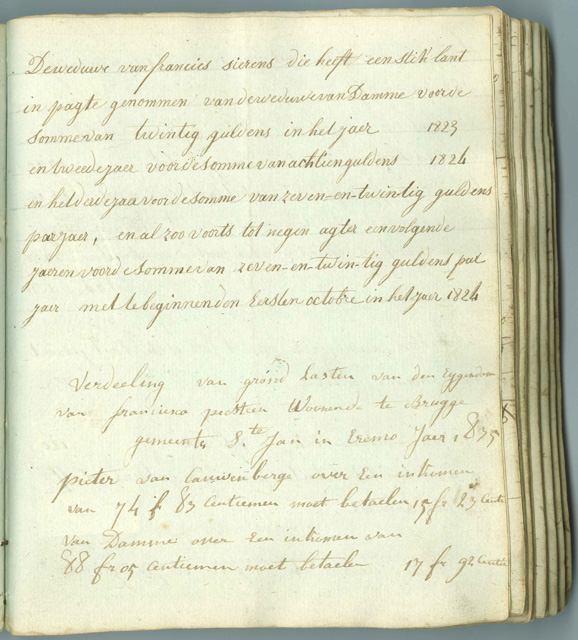 De weduwe van francies sierens die heeft een stik lant
in pagte genommen van de weduwe van Damme voor de
somme van twintig guldens in het jaer 1823
en tweede jaer voor de somme van achtien guldens 1824
en het derde jaar voor de somme van zeven-en-twin-tig guldens
par jaer, en al zoo voorts tot negen agter een volgende
jaeren voor de somme van zeven-en-twin-tig guldens par
jaer met te beginnen den Eersten octobre in het jaer 1824
Verdeeling van grond lasten van den Eygendom
van francisco Woonende te Brugge
gemeente S.te Jan in Eremo Jaer 1835
pieter van Cauwenberge over Een inkomen
van 74 f 83 Centiemen moet betaelen 15 fr 23 Centi
van Damme over Een inkomen van
88 fr 05 Centiemen moet betaelen 17 fr 92 Centi